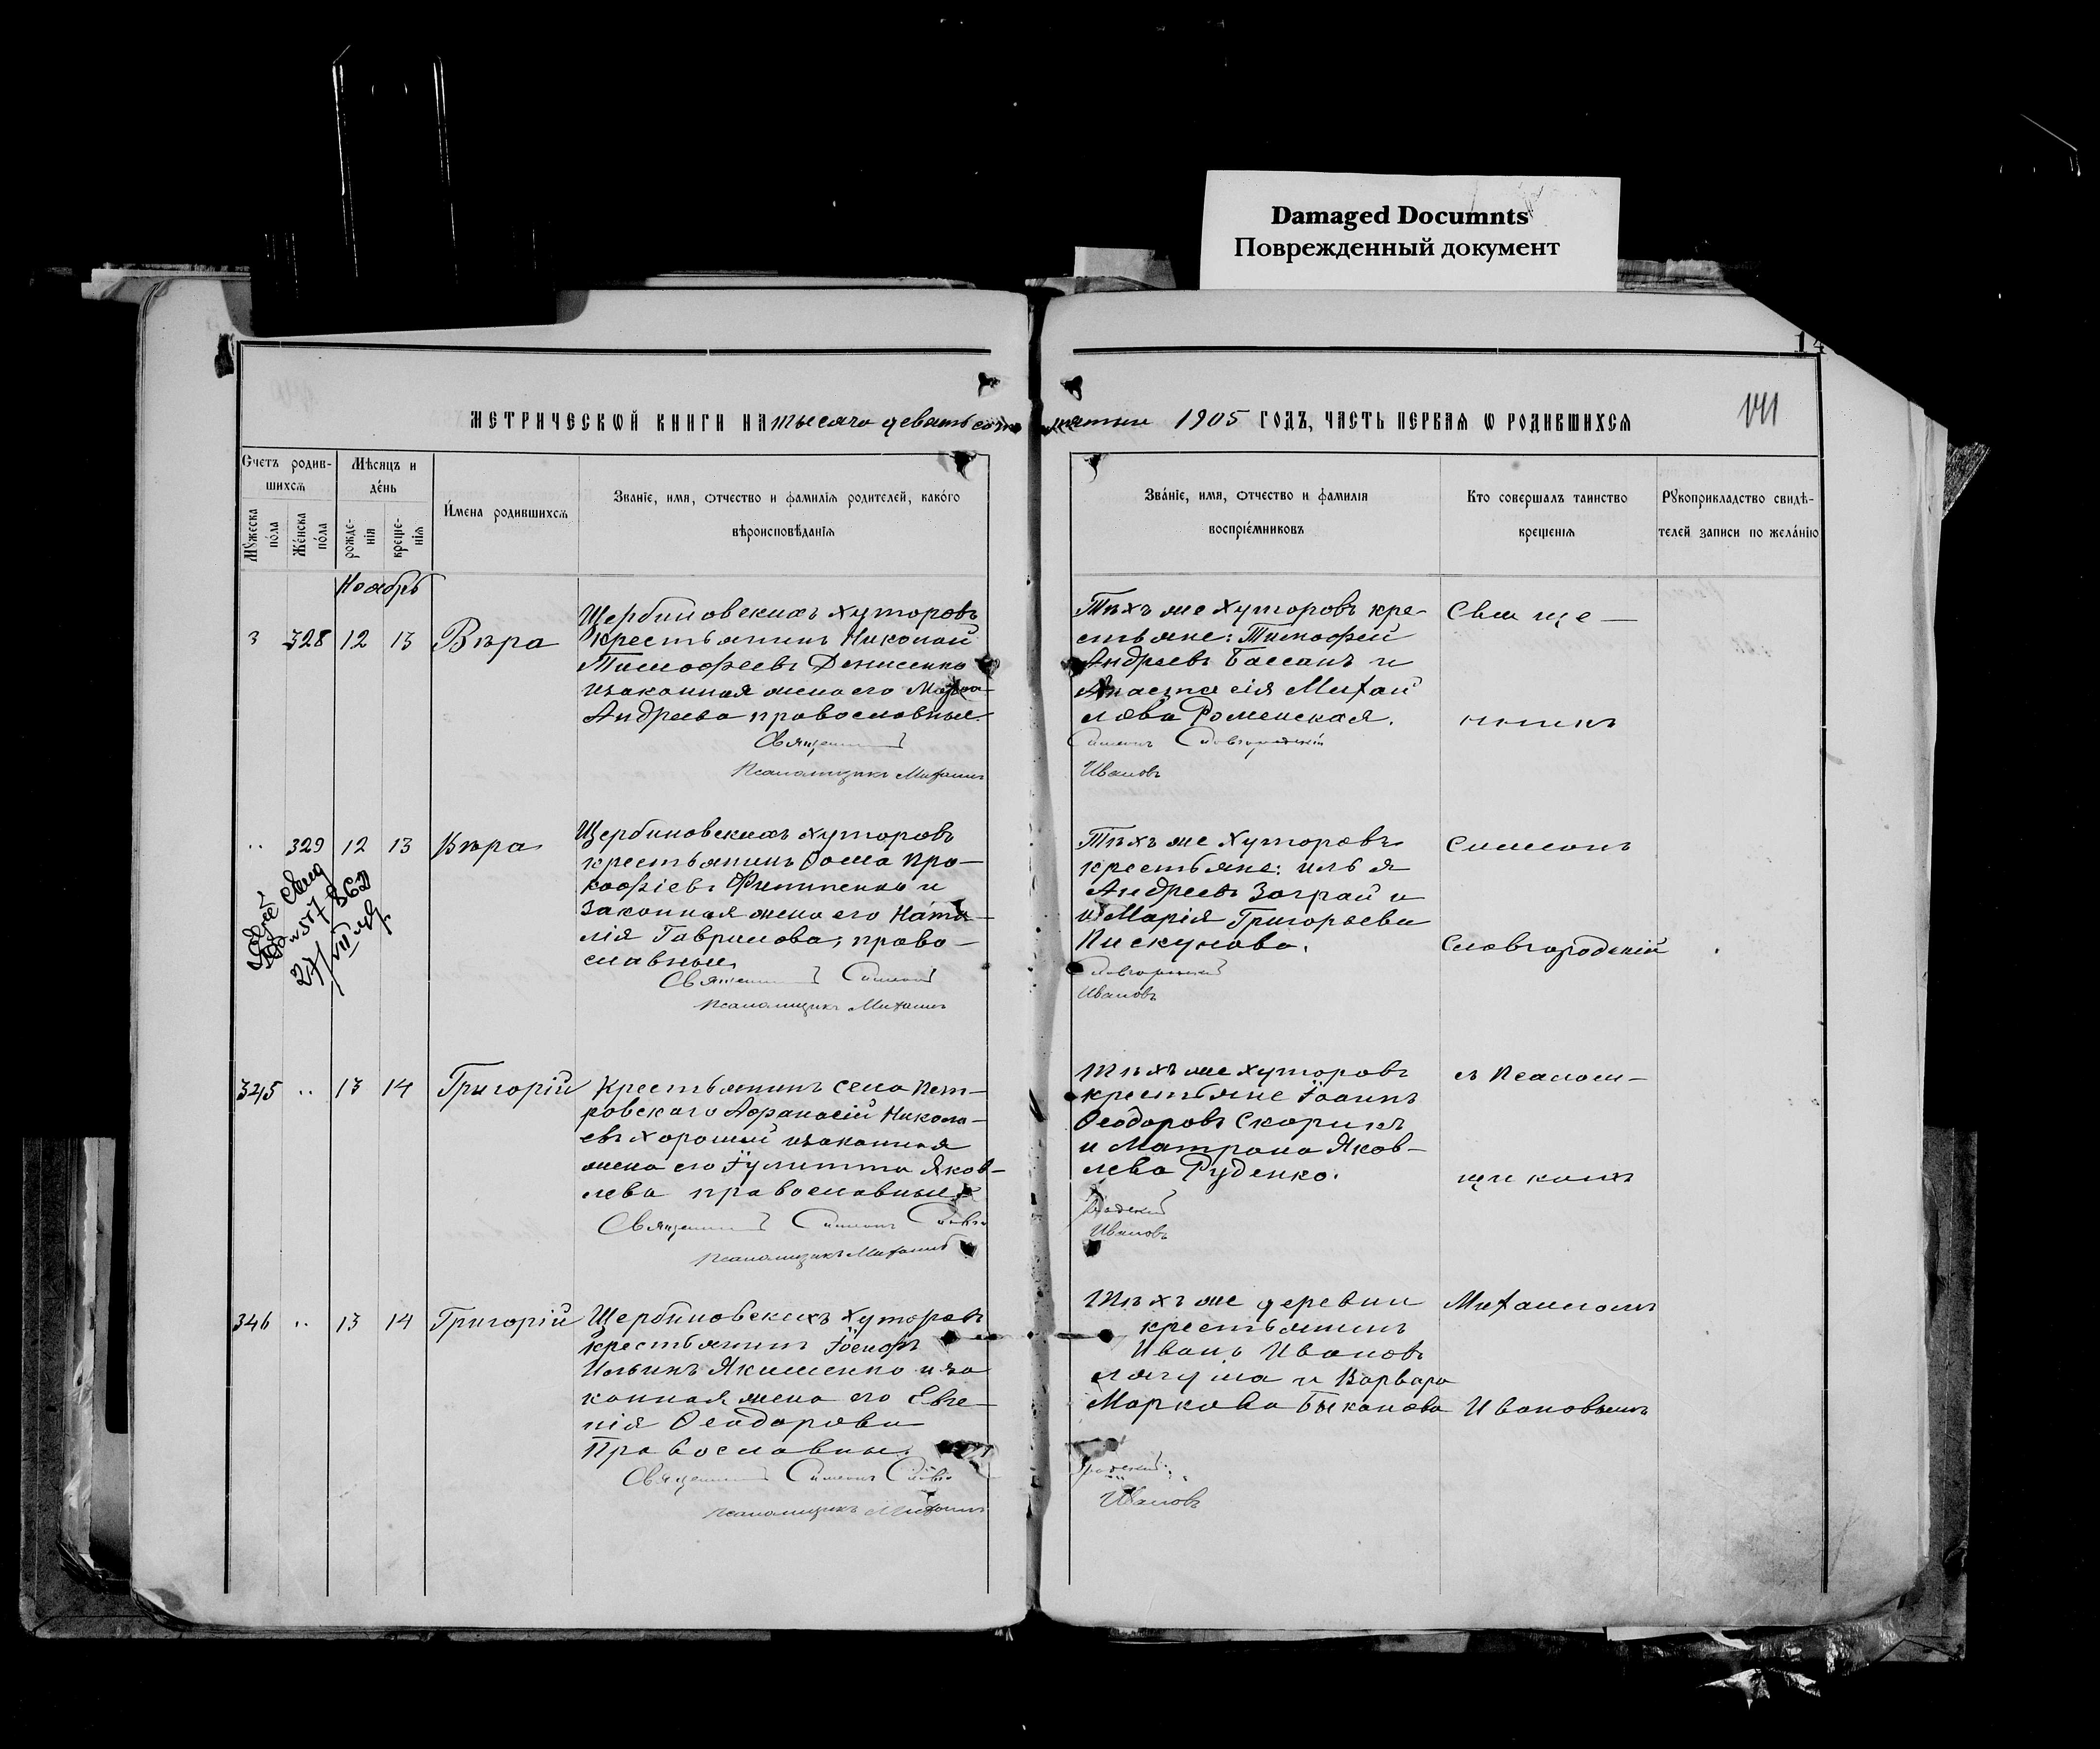 Damaged Documnts
Поврежденный документ
14
МЕТРИЧЕСКѠЙ КНИГИ НА тысяча девятьсотъ пятый 1905 ГОДЪ, ЧАСТЬ ПЕРВАѦ Ѡ РОДИВШИХСѦ
141
Счетъ родив-
шихсѧ
Мѣсяцъ и
де́нь
Мꙋжеска по́ла
Же́нска по́ла
рожде-
нїя
креще-
нїѧ
И́мена родившихсѧ
Званїе, имя, ѻтчество и фамилїѧ родителей, како́го
вѣроисповѣданїѧ
Зва́нїе, имя, ѻтчество и фамилїя
воспрїе́мниковъ
Кто совершалъ таинство
крещенїѧ
Рꙋкоприкладство свидѣ-
телей записи по жела́нїю
Ноябрь
328 12 13 Вѣра
Щербиновскихъ хуторовъ
крестьянинъ Николай
Тимофеевъ Денисенко
и законная жена его
Андреева православные.
Священник
Псаломщикъ Михаилъ
Тѣхъ же хуторовъ кре-
стьяне: Тимофей
Андреевъ Бассанъ и
Анастасія Михай
лова Роменская.
Симеонъ Словгородскій
Ивановъ
Свяще-
нникъ
329 12 13 Вѣра
Щербиновскихъ хуторовъ
крестьянинъ Ѳома Про-
кофіевъ Филипенко и
законная жена его Ната-
лія Гаврилова, право-
славные
Священник Симеон
Псаломщикъ Михаилъ
Тѣхъ же хуторовъ
крестьяне: Илья
Андреевъ Заграй и
и Марія Григорьева
Пискунова.
Словгородский
Ивановъ
Симеонъ
Словгородскій
345 .. 13 14 Григорій
Крестьянинъ села Пет-
ровскаго Афанасій Никола-
евъ Хорошій и законная
жена его Іулитта Яков-
лева православные
Священник Симеонъ Словго
Псаломщикъ Михаилъ
Тѣхъ же хуторовъ
крестьяне Іоаннъ
Ѳеодоровъ Скорикъ
и Матрона Яков-
лева Руденко.
родский
Ивановъ
съ псалом-
щикомъ
346 .. 13 14 Григорій
Щербиновскихъ хуторовъ
крестьянинъ Іосифъ
Ильинъ Якименко и за
конная жена его Евге-
нія Ѳеодорова
Православные
Священник Симеонъ Словго
Псаломщикъ Михаилъ
Тѣхъ же деревни
крестьянинъ
Иванъ Ивановъ
и Варвара
Маркова Быканова
родский
Ивановъ
Михаиломъ
Ивановымъ